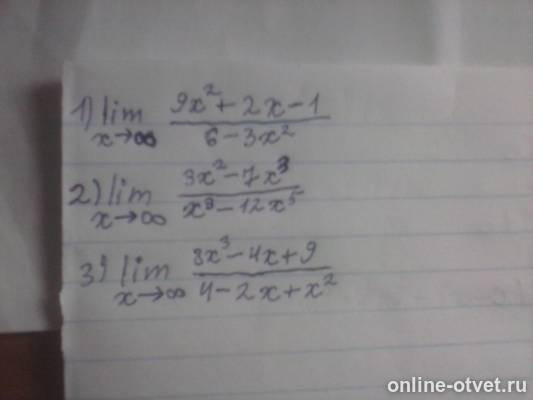 1) lim x→∞ (9x² + 2x - 1)/(6 - 3x²)
2) lim x→∞ (3x² - 7x³)/(x³ - 12x⁵)
3) lim x→∞ (8x³ - 4x + 9)/(4 - 2x + x²)
online-otvet.ru